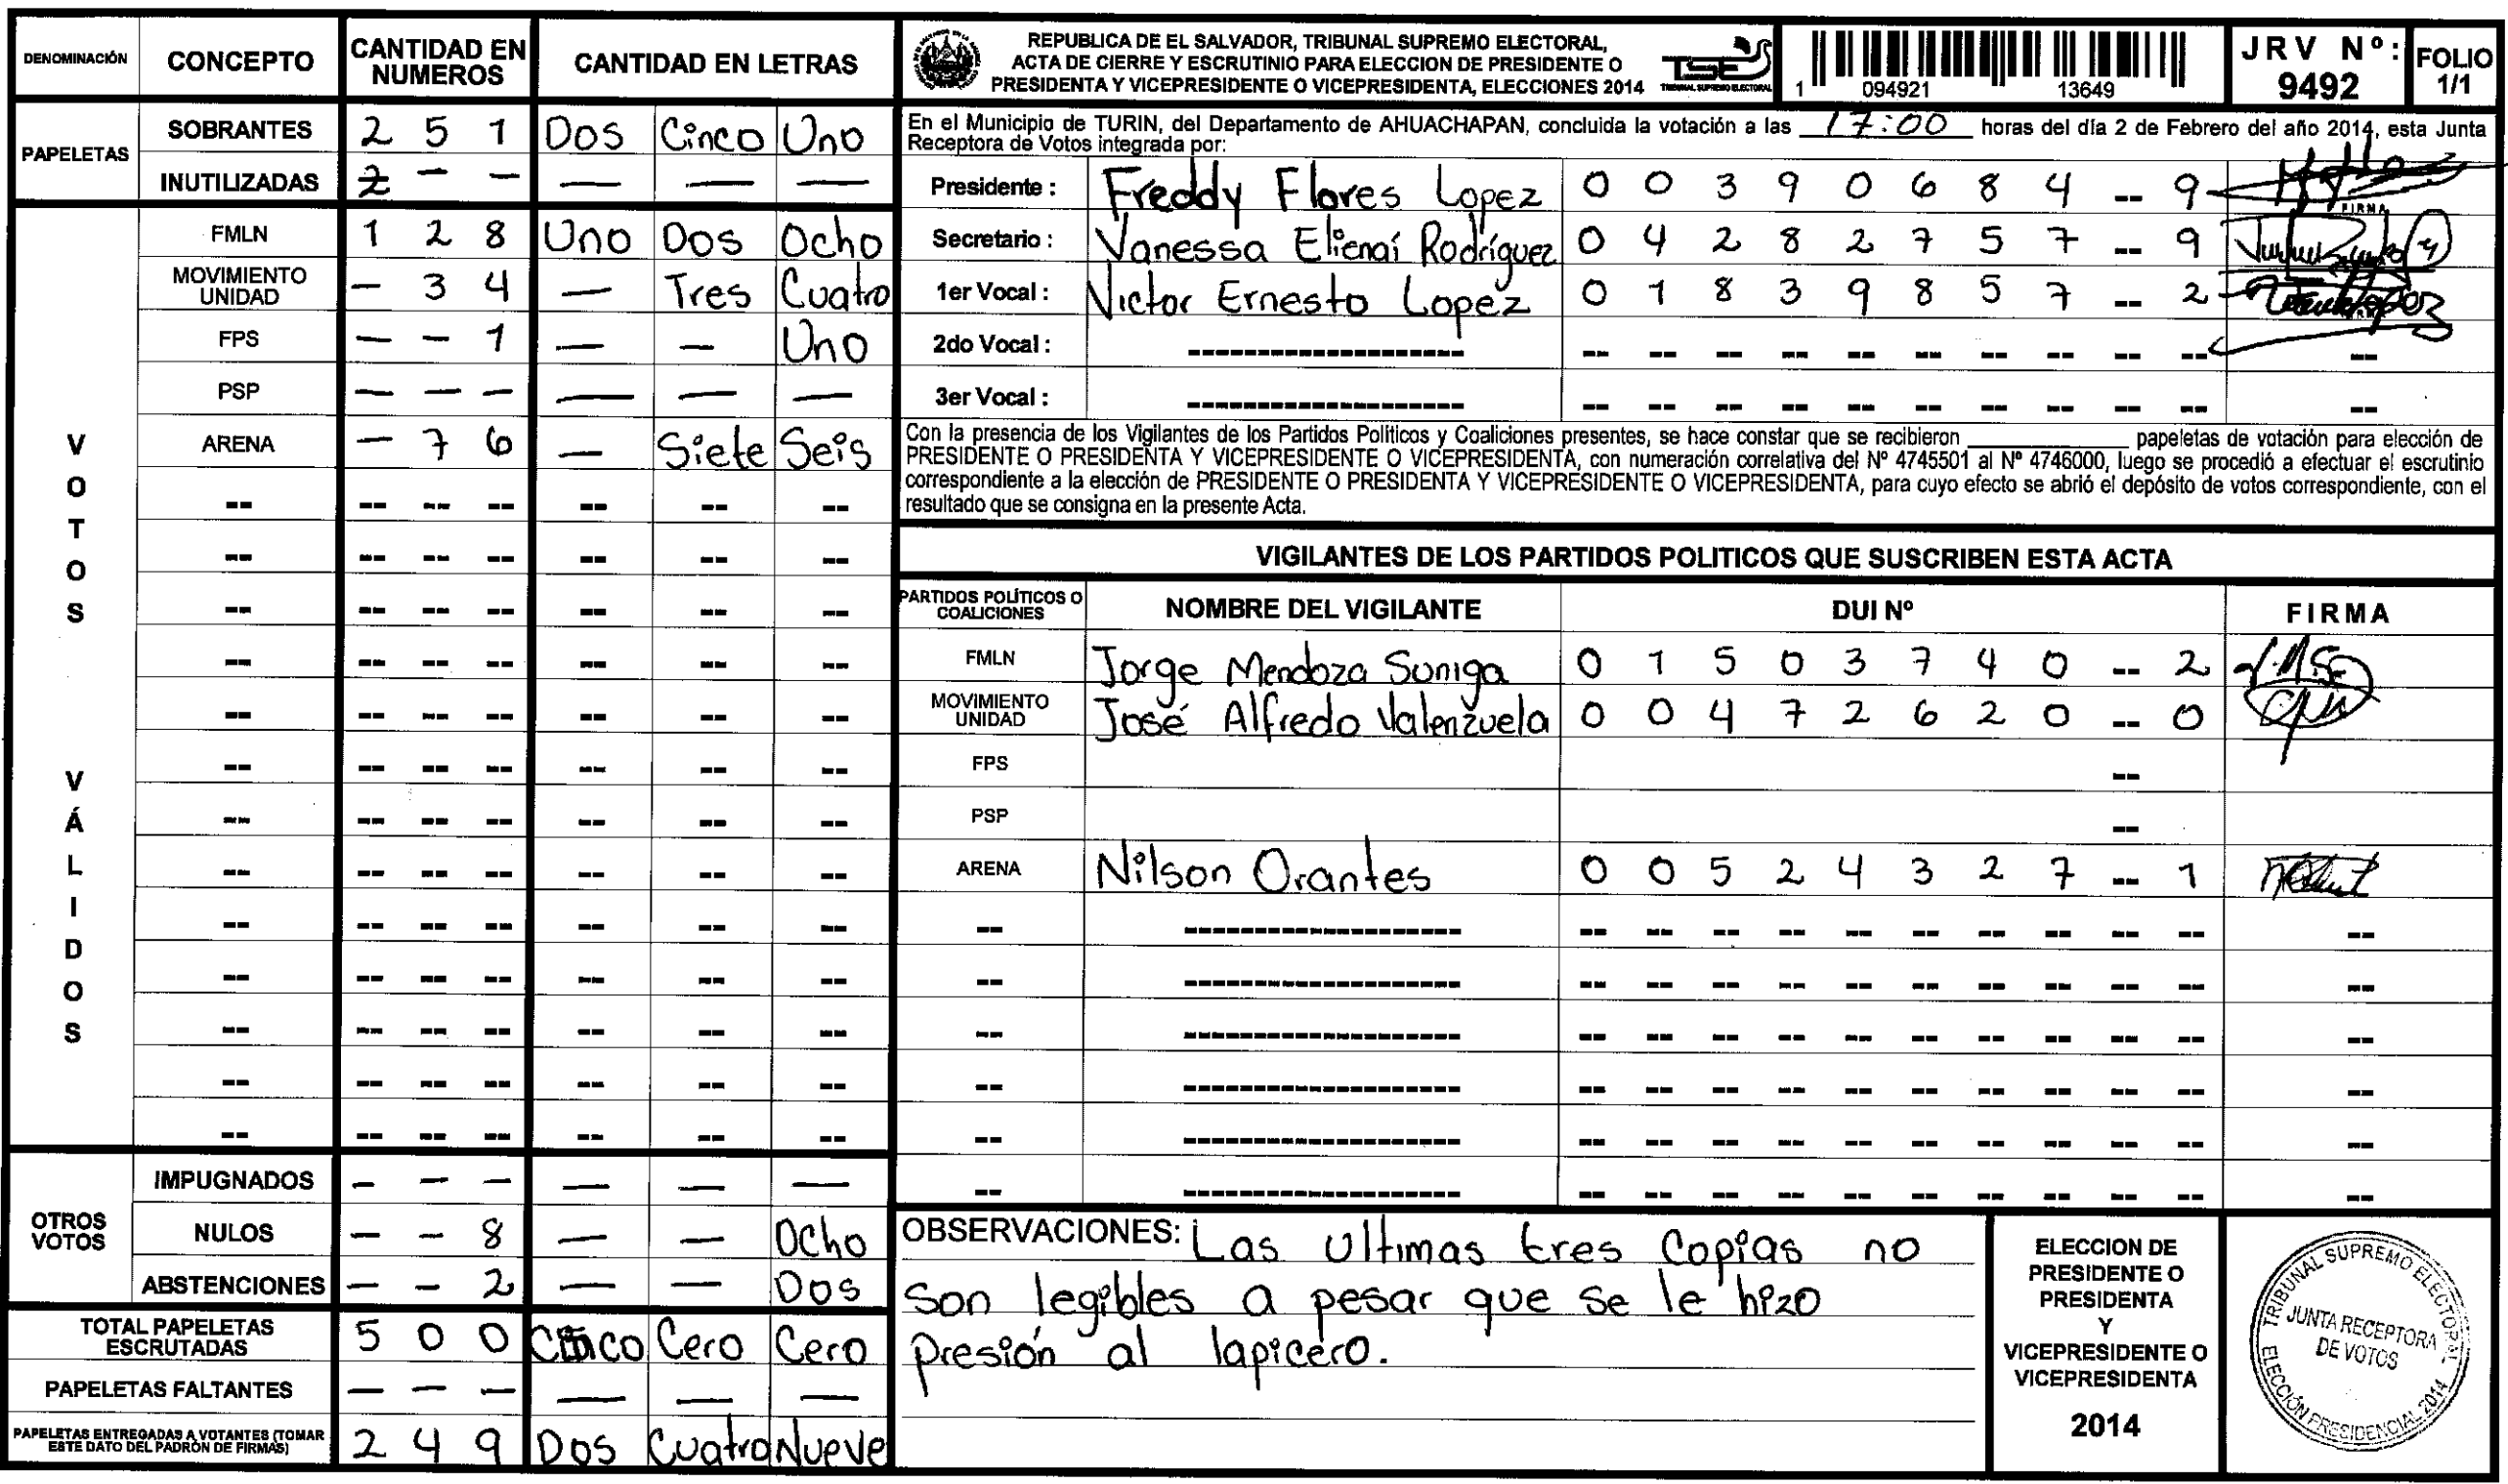 DENOMINACIÓN CONCEPTO CANTIDAD EN NUMEROS CANTIDAD EN LETRAS
PAPELETAS
SOBRANTES 2 5 1 Dos Cinco Uno
INUTILIZADAS - - — — —
VOTOS VÁLIDOS
FMLN 1 2 8 Uno Dos Ocho
MOVIMIENTO UNIDAD - 3 4 — Tres Cuatro
FPS - - 1 — — Uno
PSP - - - — — —
ARENA - 7 6 — Siete Seis
OTROS VOTOS
IMPUGNADOS - - - — — —
NULOS - - 8 — — Ocho
ABSTENCIONES - - 2 — — Dos
TOTAL PAPELETAS ESCRUTADAS 5 0 0 Cinco Cero Cero
PAPELETAS FALTANTES - - - — — —
PAPELETAS ENTREGADAS A VOTANTES (TOMAR ESTE DATO DEL PADRÓN DE FIRMAS) 2 4 9 Dos Cuatro Nueve
REPUBLICA DE EL SALVADOR, TRIBUNAL SUPREMO ELECTORAL,
ACTA DE CIERRE Y ESCRUTINIO PARA ELECCION DE PRESIDENTE O
PRESIDENTA Y VICEPRESIDENTE O VICEPRESIDENTA, ELECCIONES 2014
TSE
TRIBUNAL SUPREMO ELECTORAL
1 094921 13649
JRV Nº: 9492
FOLIO 1/1
En el Municipio de TURIN, del Departamento de AHUACHAPAN, concluida la votación a las 17:00 horas del día 2 de Febrero del año 2014, esta Junta
Receptora de Votos integrada por:
Presidente : Freddy Flores Lopez 0 0 3 9 0 6 8 4 -- 9
FIRMA
Secretario : Vanessa Elienaí Rodríguez 0 4 2 8 2 7 5 7 -- 9
1er Vocal : Victor Ernesto Lopez 0 1 8 3 9 8 5 7 -- 2
2do Vocal :
3er Vocal :
Con la presencia de los Vigilantes de los Partidos Politicos y Coaliciones presentes, se hace constar que se recibieron ____ papeletas de votación para elección de
PRESIDENTE O PRESIDENTA Y VICEPRESIDENTE O VICEPRESIDENTA, con numeración correlativa del Nº 4745501 al Nº 4746000, luego se procedió a efectuar el escrutinio
correspondiente a la elección de PRESIDENTE O PRESIDENTA Y VICEPRESIDENTE O VICEPRESIDENTA, para cuyo efecto se abrió el depósito de votos correspondiente, con el
resultado que se consigna en la presente Acta.
VIGILANTES DE LOS PARTIDOS POLITICOS QUE SUSCRIBEN ESTA ACTA
PARTIDOS POLÍTICOS O COALICIONES NOMBRE DEL VIGILANTE DUI Nº FIRMA
FMLN Jorge Mendoza Suniga 0 1 5 0 3 7 4 0 -- 2
MOVIMIENTO UNIDAD José Alfredo Valenzuela 0 0 4 7 2 6 2 0 -- 0
FPS --
PSP --
ARENA Nilson Orantes 0 0 5 2 4 3 2 7 -- 1
OBSERVACIONES: Las Ultimas tres Copias no
Son legibles a pesar que se le hizo
presión al lapicero.
ELECCION DE
PRESIDENTE O
PRESIDENTA
Y
VICEPRESIDENTE O
VICEPRESIDENTA
2014
TRIBUNAL SUPREMO ELECTORAL
JUNTA RECEPTORA
DE VOTOS
ELECCIÓN PRESIDENCIAL 2014